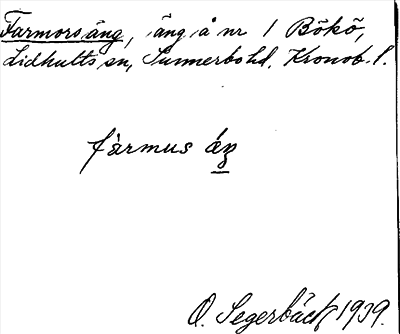 Farmorsäng, äng å nr 1 Bökö,
Lidhults sn, Sunnerbo hd, Kronob. l.
fàrmus áŋ
O. Segerbäck 1939.